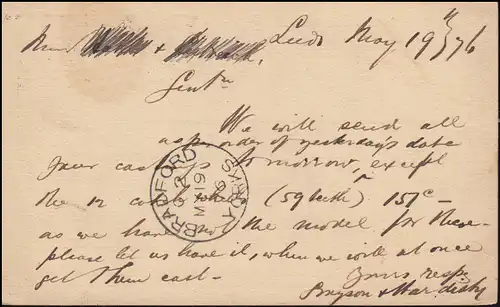 Leeds May 19th/76
Gentn
We will send all
as per order of yesterdays date
your castings tomorrow, except
the 12 cast wheels (59 teeth) 151c —
as we have not the model for these
please let us have it, when we will at once
get them cast —
Yours respy
Bryson &
BRADFORD YORKS
MY 19
76